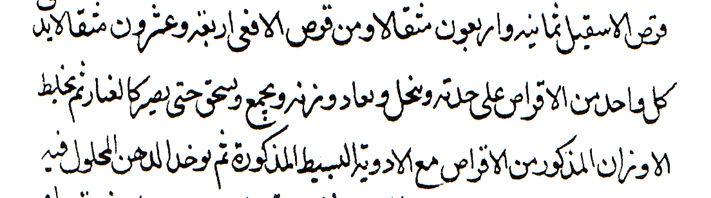 قرص الاسقيل ثمانيه واربعون مثقالا ومن قرص الافعى اربعة وعشرون مثقالا يدق
كل واحد من الاقراص على حدته وينخل ويعاد وزنه ويجمع ويسحق حتى يصير كالغبار ثم يخلط
الاوزان المذكور من الاقراص مع الادوية البسيط المذكورة ثم يوخذ الدهن المحلول فيه